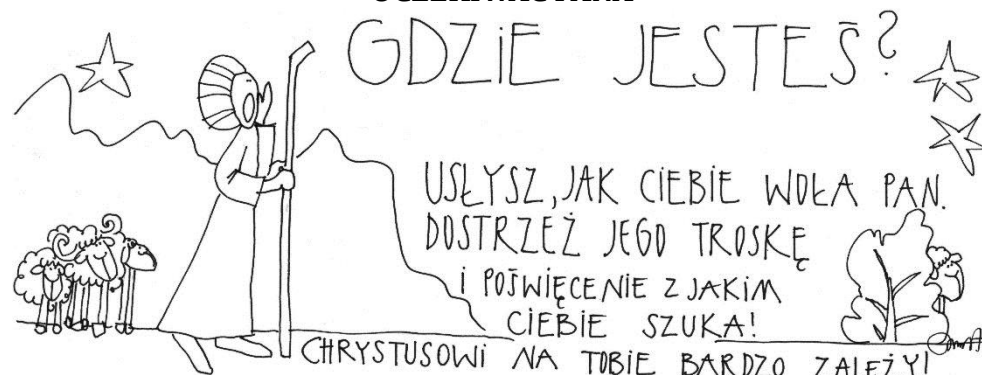 GDZiE JESTEŚ?
USŁYSZ, JAK CIEBIE WOŁA PAN.
DOSTRZEŻ JEGO TROSKĘ
i POŚWIĘCENIE Z JAKIM
CIEBIE SZUKA!
CHRYSTUSOWi NA TOBIE BARDZO ZALEŻY!